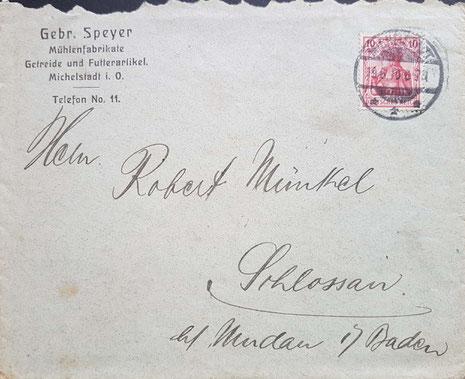 Gebr. Speyer
Mühlenfabrikate
Getreide und Futterartikel.
Michelstadt i. O.
Telefon No. 11.
10 10
Herrn
Robert Münkel
Schlossau
bei Mudau i/ Baden